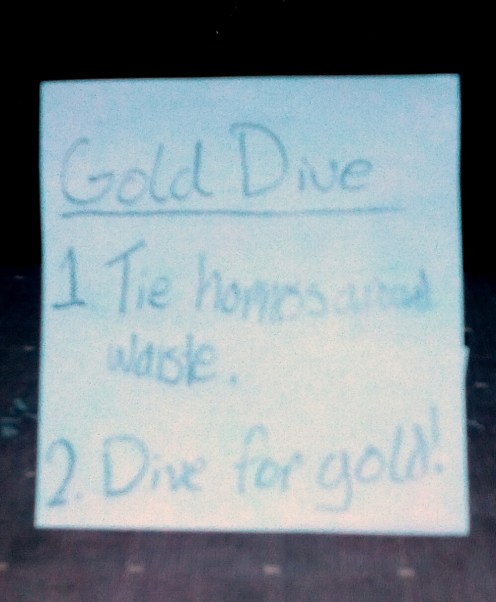 Gold Dive
1 Tie harness around
waiste.
2. Dive for gold!